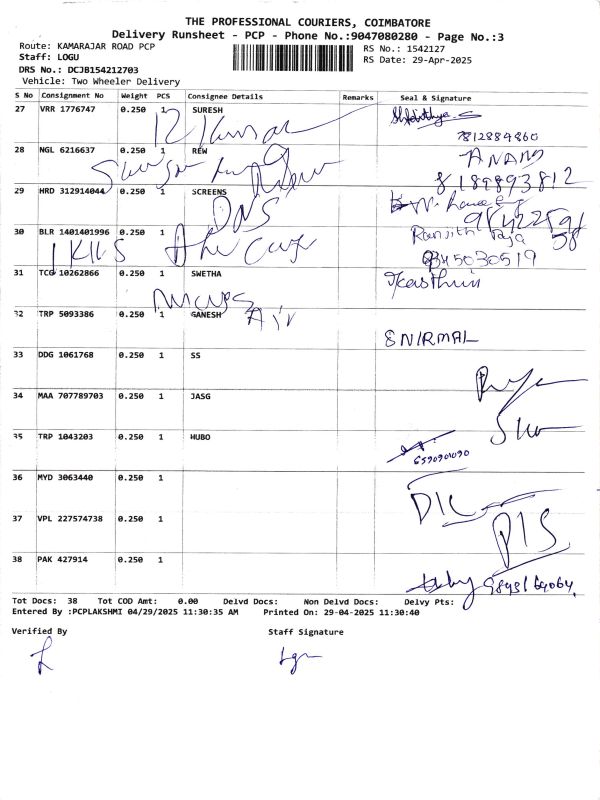 THE PROFESSIONAL COURIERS, COIMBATORE
Delivery Runsheet - PCP - Phone No.:9047080280 - Page No.:3
Route: KAMARAJAR ROAD PCP
RS No.: 1542127
Staff: LOGU
RS Date: 29-Apr-2025
DRS No.: DCJB154212703
Vehicle: Two Wheeler Delivery
S No Consignment No Weight PCS Consignee Details Remarks Seal & Signature
27 VRR 1776747 0.250 1 SURESH
Kumar
7812884860
28 NGL 6216637 0.250 1 REW
ANAND
8189893812
29 HRD 312914044 0.250 1 SCREENS
DNS
30 BLR 1401401996 0.250 1 Ranjith Raja
The Cage
9345030519
31 TCG 10262866 0.250 1 SWETHA
Kasthuri
32 TRP 5093386 0.250 1 GANESH
Air
SNIRMAL
33 DDG 1061768 0.250 1 SS
34 MAA 707789703 0.250 1 JASG
35 TRP 1043203 0.250 1 HUBO
36 MYD 3063440 0.250 1
37 VPL 227574738 0.250 1
38 PAK 427914 0.250 1
Tot Docs: 38 Tot COD Amt: 0.00 Delvd Docs: Non Delvd Docs: Delvy Pts:
Entered By :PCPLAKSHMI 04/29/2025 11:30:35 AM Printed On: 29-04-2025 11:30:40
Verified By Staff Signature